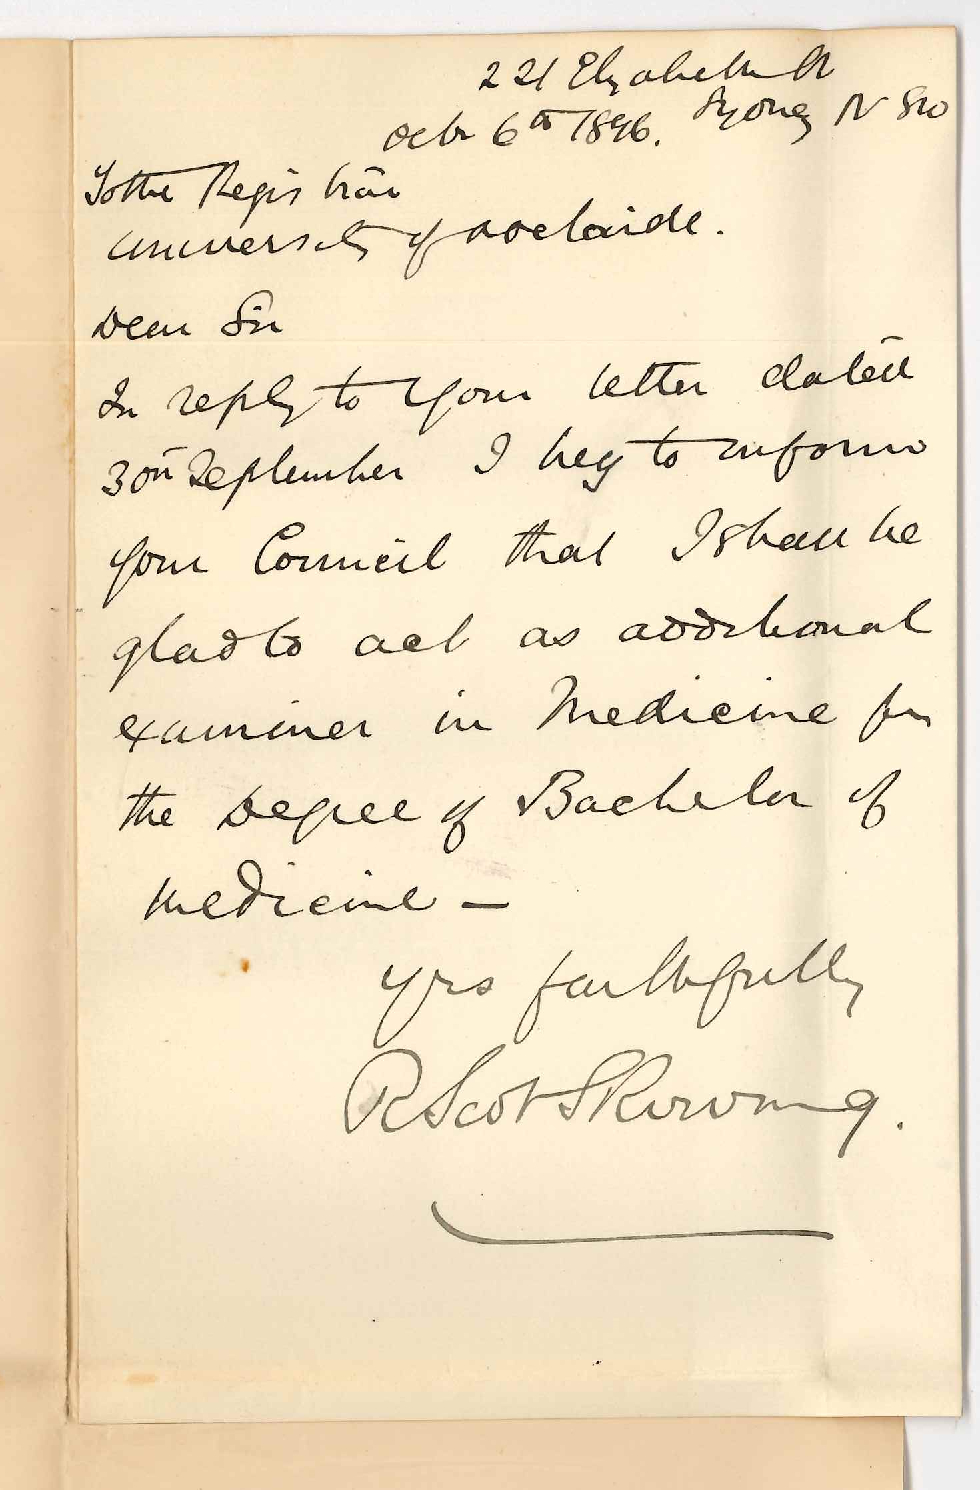 221 Elizabeth St
Sydney NSW
Octr 6th 1896.
To the Registrar
University of Adelaide.
Dear Sir
In reply to your letter dated
30th September I beg to inform
your Council that I shall be
glad to act as additional
examiner in Medicine for
the Degree of Bachelor of
Medicine —
Yrs faithfully
R Scot Skirving.